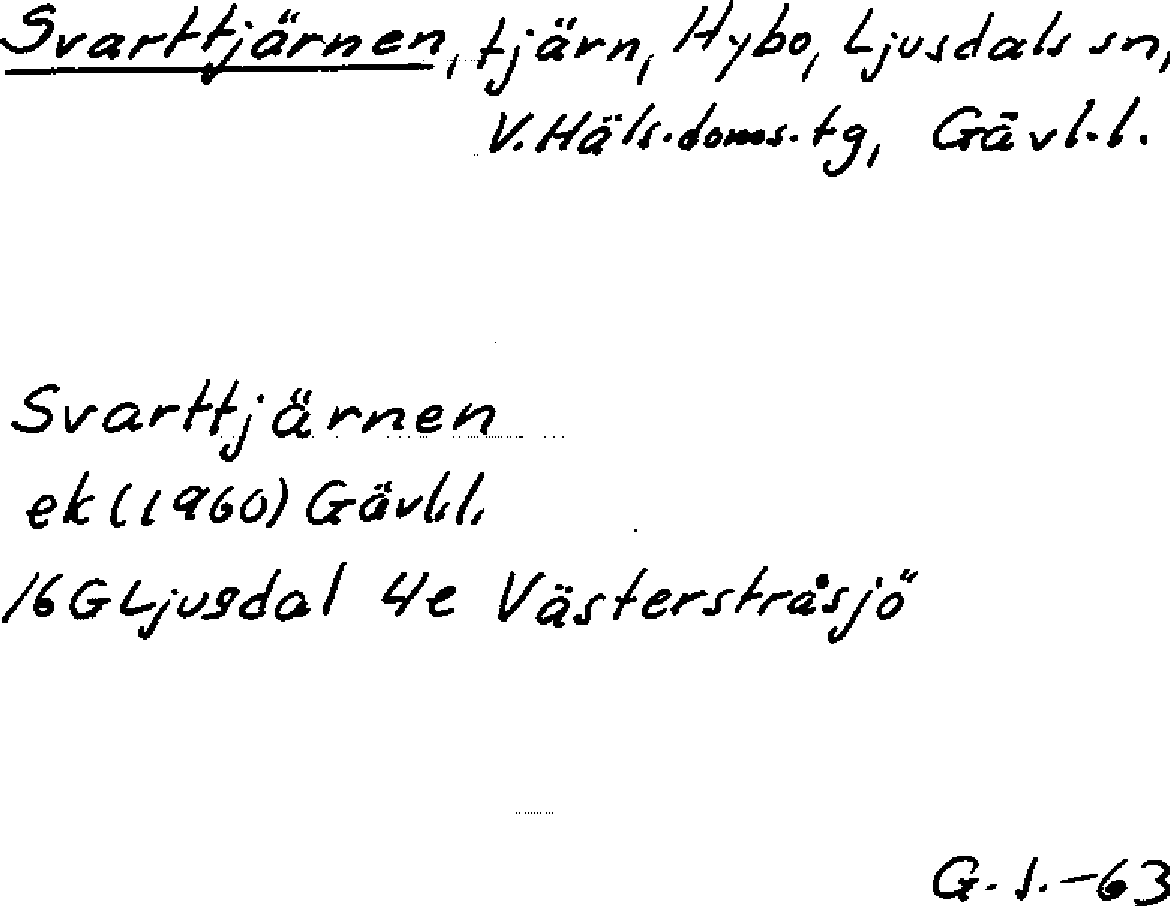 Svarttjärnen, tjärn, Hybo, Ljusdals sn,
V. Häls. doms. tg, Gävl. l.
Svarttjärnen
ek (1960) Gävl. l.
16G Ljusdal 4e Västerstråsjö
G. S. -63